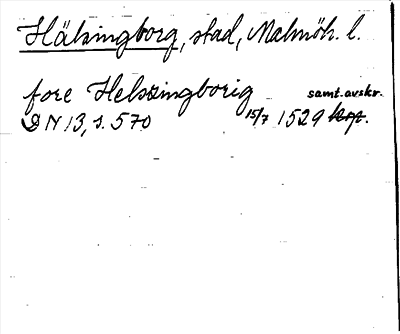 Hälsingborg, stad, Malmöh. l.
fore Helsszingborig samt. avskr.
DN 13, s. 570 15/7 1529 kop.